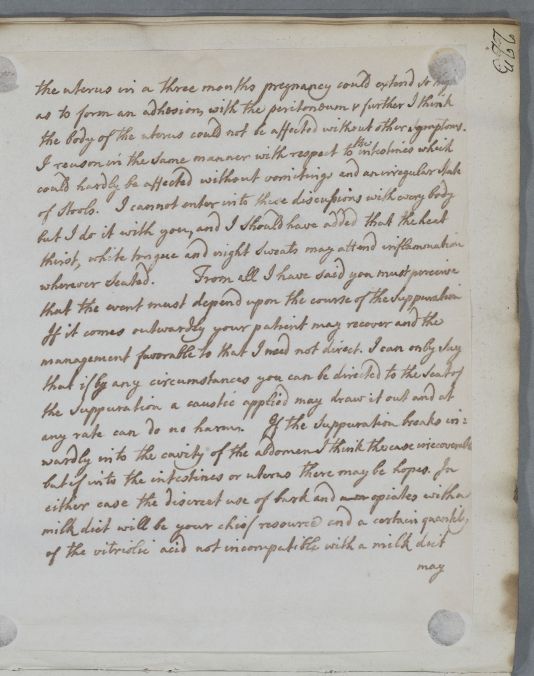 223
the uterus in a three months pregnancy could extend so high
as to form an adhesion, with the peritoneum & further I think
the body of the uterus could not be affected without other symptoms.
I reason in the same manner with respect to the intestines which
could hardly be affected without vomitings and an irregular State
of Stools. I cannot enter into these discussions with every body
but I do it with you, and I Should have added that the heat
thirst, white tongue and night Sweats may attend inflammation
wherever Seated. From all I have said you must perceive
that the event must depend upon the course of the Suppuration
If it comes outwardly your patient may recover and the
management favorable to that I need not direct. I can only Say
that if by any circumstances you can be directed to the Seat of
the Suppuration a caustic applied may draw it out and at
any rate can do no harm. If the Suppuration breaks in=
wardly into the cavity of the abdomen I think the case irrecoverable
but if into the intestines or uterus there may be hopes. In
either case the discreet use of bark and opiates with a
milk diet will be your chief resource and a certain quantity
of the vitriolic acid not incompatible with a milk diet
may